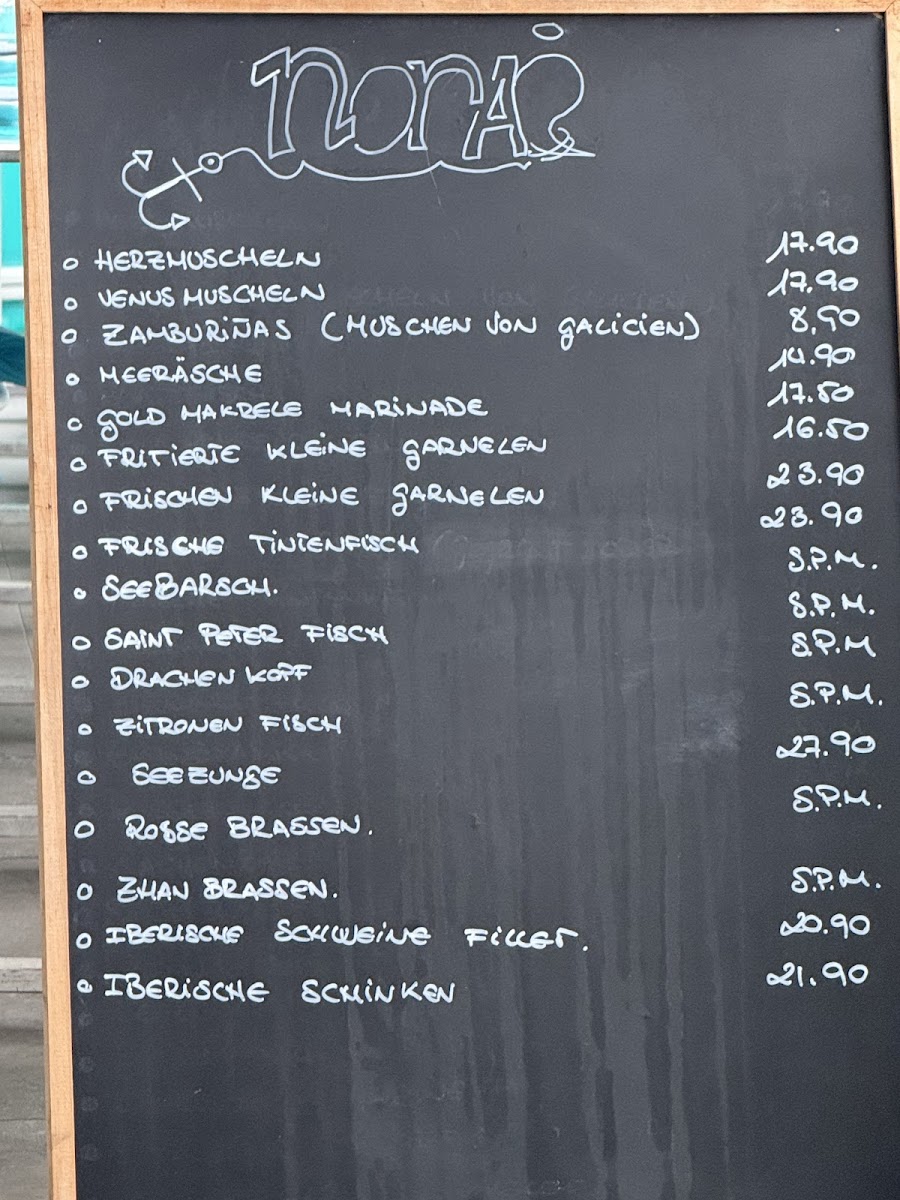 NORAI
HERZMUSCHELN 17.90
VENUS MUSCHELN 17.90
ZAMBURIÑAS (MUSCHEN VON GALICIEN) 8,90
MEERÄSCHE 14.90
GOLD MAKRELE MARINADE 17.50
FRITIERTE KLEINE GARNELEN 16.50
FRISCHEN KLEINE GARNELEN 23.90
FRISCHE TINTENFISCH 23.90
SEEBARSCH. S.P.M.
SAINT PETER FISCH S.P.M.
DRACHEN KOPF S.P.M
ZITRONEN FISCH S.P.M.
SEEZUNGE 27.90
ROSSE BRASSEN. S.P.M.
ZHAN BRASSEN. S.P.M.
IBERISCHE SCHWEINE FILLET. 20.90
IBERISCHE SCHINKEN 21.90